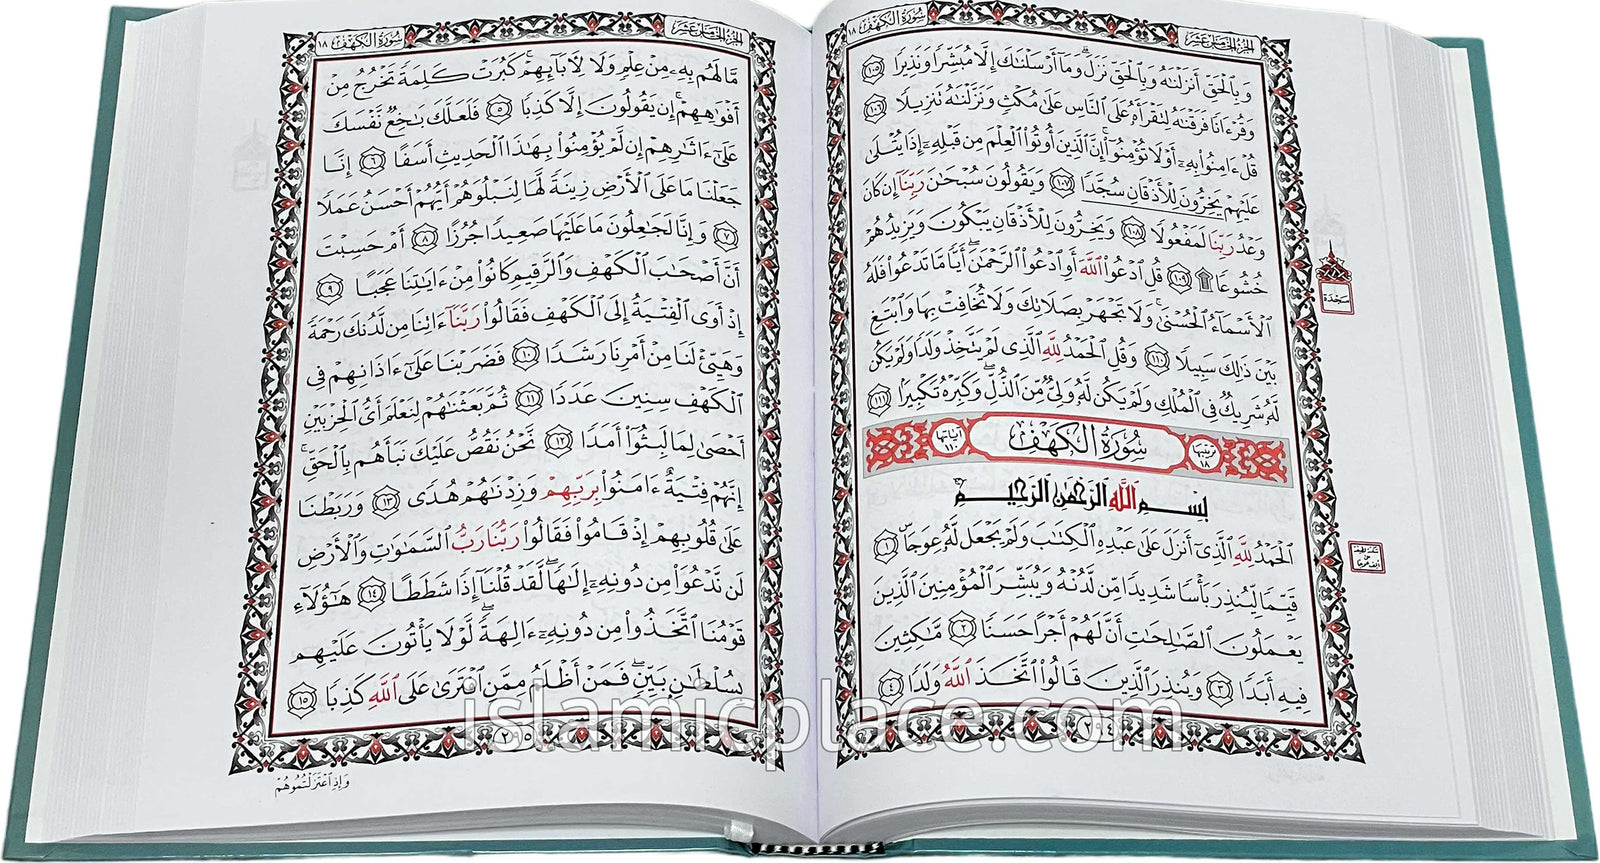 سُورَةُ الْكَهْفِ ١٨
الجزء الخامس عشر
وَبِٱلْحَقِّ أَنزَلْنَٰهُ وَبِٱلْحَقِّ نَزَلَ ۗ وَمَآ أَرْسَلْنَٰكَ إِلَّا مُبَشِّرًا وَنَذِيرًا ١٠٥
وَقُرْءَانًا فَرَقْنَٰهُ لِتَقْرَأَهُۥ عَلَى ٱلنَّاسِ عَلَىٰ مُكْثٍ وَنَزَّلْنَٰهُ تَنزِيلًا ١٠٦
قُلْ ءَامِنُوا۟ بِهِۦٓ أَوْ لَا تُؤْمِنُوٓا۟ ۚ إِنَّ ٱلَّذِينَ أُوتُوا۟ ٱلْعِلْمَ مِن قَبْلِهِۦٓ إِذَا يُتْلَىٰ
عَلَيْهِمْ يَخِرُّونَ لِلْأَذْقَانِ سُجَّدًا ١٠٧ وَيَقُولُونَ سُبْحَٰنَ رَبِّنَآ إِن كَانَ
وَعْدُ رَبِّنَا لَمَفْعُولًا ١٠٨ وَيَخِرُّونَ لِلْأَذْقَانِ يَبْكُونَ وَيَزِيدُهُمْ
خُشُوعًا ۩ ١٠٩ قُلِ ٱدْعُوا۟ ٱللَّهَ أَوِ ٱدْعُوا۟ ٱلرَّحْمَٰنَ ۖ أَيًّا مَّا تَدْعُوا۟ فَلَهُ
ٱلْأَسْمَآءُ ٱلْحُسْنَىٰ ۚ وَلَا تَجْهَرْ بِصَلَاتِكَ وَلَا تُخَافِتْ بِهَا وَٱبْتَغِ
بَيْنَ ذَٰلِكَ سَبِيلًا ١١٠ وَقُلِ ٱلْحَمْدُ لِلَّهِ ٱلَّذِى لَمْ يَتَّخِذْ وَلَدًا وَلَمْ يَكُن
لَّهُۥ شَرِيكٌ فِى ٱلْمُلْكِ وَلَمْ يَكُن لَّهُۥ وَلِىٌّ مِّنَ ٱلذُّلِّ ۖ وَكَبِّرْهُ تَكْبِيرًۢا ١١١
ترتيبها ١٨ سُورَةُ الْكَهْفِ آياتها ١١٠
بِسْمِ ٱللَّهِ ٱلرَّحْمَٰنِ ٱلرَّحِيمِ
ٱلْحَمْدُ لِلَّهِ ٱلَّذِىٓ أَنزَلَ عَلَىٰ عَبْدِهِ ٱلْكِتَٰبَ وَلَمْ يَجْعَل لَّهُۥ عِوَجَا ۜ ١
قَيِّمًا لِّيُنذِرَ بَأْسًا شَدِيدًا مِّن لَّدُنْهُ وَيُبَشِّرَ ٱلْمُؤْمِنِينَ ٱلَّذِينَ
يَعْمَلُونَ ٱلصَّٰلِحَٰتِ أَنَّ لَهُمْ أَجْرًا حَسَنًا ٢ مَّٰكِثِينَ
فِيهِ أَبَدًا ٣ وَيُنذِرَ ٱلَّذِينَ قَالُوا۟ ٱتَّخَذَ ٱللَّهُ وَلَدًا ٤
سَجْدَة
سُورَةُ الْكَهْفِ ١٨
الجزء الخامس عشر
مَّا لَهُم بِهِۦ مِنْ عِلْمٍ وَلَا لِءَابَآئِهِمْ ۚ كَبُرَتْ كَلِمَةً تَخْرُجُ مِنْ
أَفْوَٰهِهِمْ ۚ إِن يَقُولُونَ إِلَّا كَذِبًا ٥ فَلَعَلَّكَ بَٰخِعٌ نَّفْسَكَ
عَلَىٰٓ ءَاثَٰرِهِمْ إِن لَّمْ يُؤْمِنُوا۟ بِهَٰذَا ٱلْحَدِيثِ أَسَفًا ٦ إِنَّا
جَعَلْنَا مَا عَلَى ٱلْأَرْضِ زِينَةً لَّهَا لِنَبْلُوَهُمْ أَيُّهُمْ أَحْسَنُ عَمَلًا
٧ وَإِنَّا لَجَٰعِلُونَ مَا عَلَيْهَا صَعِيدًا جُرُزًا ٨ أَمْ حَسِبْتَ
أَنَّ أَصْحَٰبَ ٱلْكَهْفِ وَٱلرَّقِيمِ كَانُوا۟ مِنْ ءَايَٰتِنَا عَجَبًا ٩
إِذْ أَوَى ٱلْفِتْيَةُ إِلَى ٱلْكَهْفِ فَقَالُوا۟ رَبَّنَآ ءَاتِنَا مِن لَّدُنكَ رَحْمَةً
وَهَيِّئْ لَنَا مِنْ أَمْرِنَا رَشَدًا ١٠ فَضَرَبْنَا عَلَىٰٓ ءَاذَانِهِمْ فِى
ٱلْكَهْفِ سِنِينَ عَدَدًا ١١ ثُمَّ بَعَثْنَٰهُمْ لِنَعْلَمَ أَىُّ ٱلْحِزْبَيْنِ
أَحْصَىٰ لِمَا لَبِثُوٓا۟ أَمَدًا ١٢ نَّحْنُ نَقُصُّ عَلَيْكَ نَبَأَهُم بِٱلْحَقِّ ۚ
إِنَّهُمْ فِتْيَةٌ ءَامَنُوا۟ بِرَبِّهِمْ وَزِدْنَٰهُمْ هُدًى ١٣ وَرَبَطْنَا
عَلَىٰ قُلُوبِهِمْ إِذْ قَامُوا۟ فَقَالُوا۟ رَبُّنَا رَبُّ ٱلسَّمَٰوَٰتِ وَٱلْأَرْضِ
لَن نَّدْعُوَا۟ مِن دُونِهِۦٓ إِلَٰهًا ۖ لَّقَدْ قُلْنَآ إِذًا شَطَطًا ١٤ هَٰٓؤُلَآءِ
قَوْمُنَا ٱتَّخَذُوا۟ مِن دُونِهِۦٓ ءَالِهَةً ۖ لَّوْلَا يَأْتُونَ عَلَيْهِم
بِسُلْطَٰنٍۭ بَيِّنٍ ۖ فَمَنْ أَظْلَمُ مِمَّنِ ٱفْتَرَىٰ عَلَى ٱللَّهِ كَذِبًا ١٥
٢٩٥
وَإِذِ ٱعْتَزَلْتُمُوهُمْ
islamicplace.com